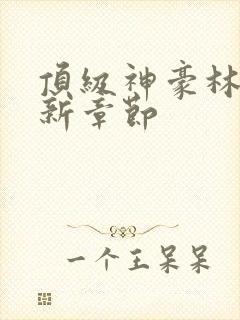 頂級神豪林
新章節
一个王呆呆